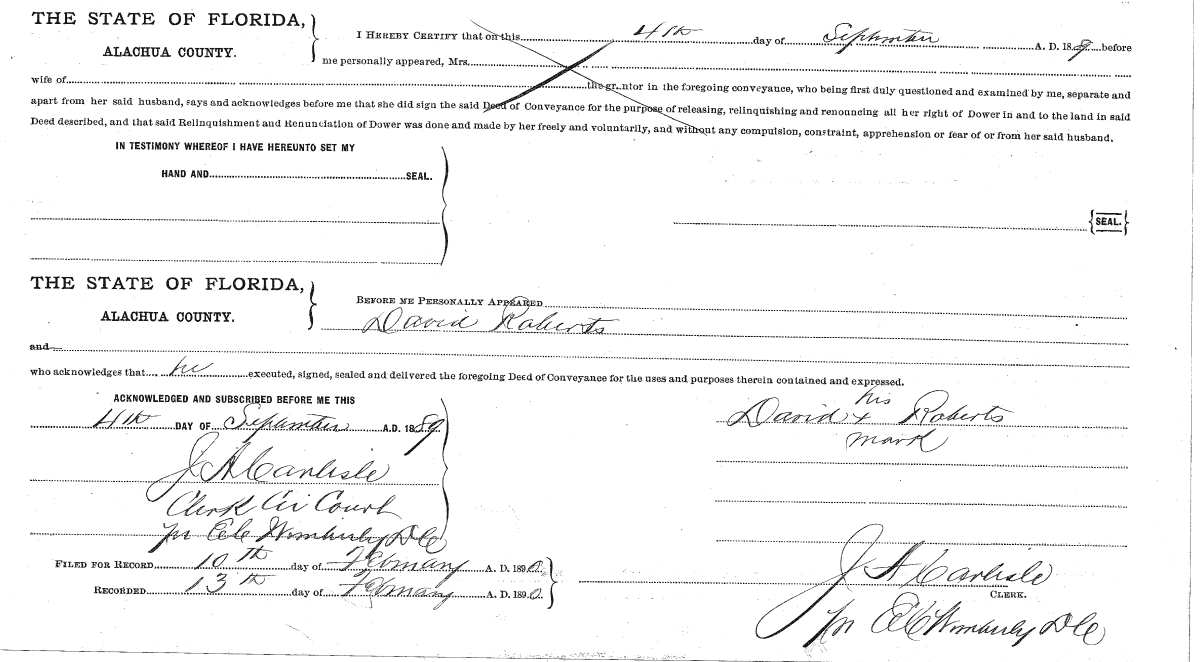 THE STATE OF FLORIDA,
ALACHUA COUNTY.
I HEREBY CERTIFY that on this 4th day of September A. D. 18 9 before
me personally appeared, Mrs.
wife of the gr..ntor in the foregoing conveyance, who being first duly questioned and examined by me, separate and
apart from her said husband, says and acknowledges before me that she did sign the said Deed of Conveyance for the purpose of releasing, relinquishing and renouncing all her right of Dower in and to the land in said
Deed described, and that said Relinquishment and Renunciation of Dower was done and made by her freely and voluntarily, and without any compulsion, constraint, apprehension or fear of or from her said husband.
IN TESTIMONY WHEREOF I HAVE HEREUNTO SET MY
HAND AND SEAL.
SEAL.
THE STATE OF FLORIDA,
ALACHUA COUNTY.
BEFORE ME PERSONALLY APPEARED
David Roberts
and
who acknowledges that he executed, signed, sealed and delivered the foregoing Deed of Conveyance for the uses and purposes therein contained and expressed.
ACKNOWLEDGED AND SUBSCRIBED BEFORE ME THIS
4th DAY OF September A.D. 1889
J A Carlisle
Clerk Cir Court
pr E C Wimberly D C
his
David + Roberts
mark
FILED FOR RECORD 10th day of February A. D. 1890.
RECORDED 13th day of February A. D. 1890.
J A Carlisle
CLERK.
pr E C Wimberly D C